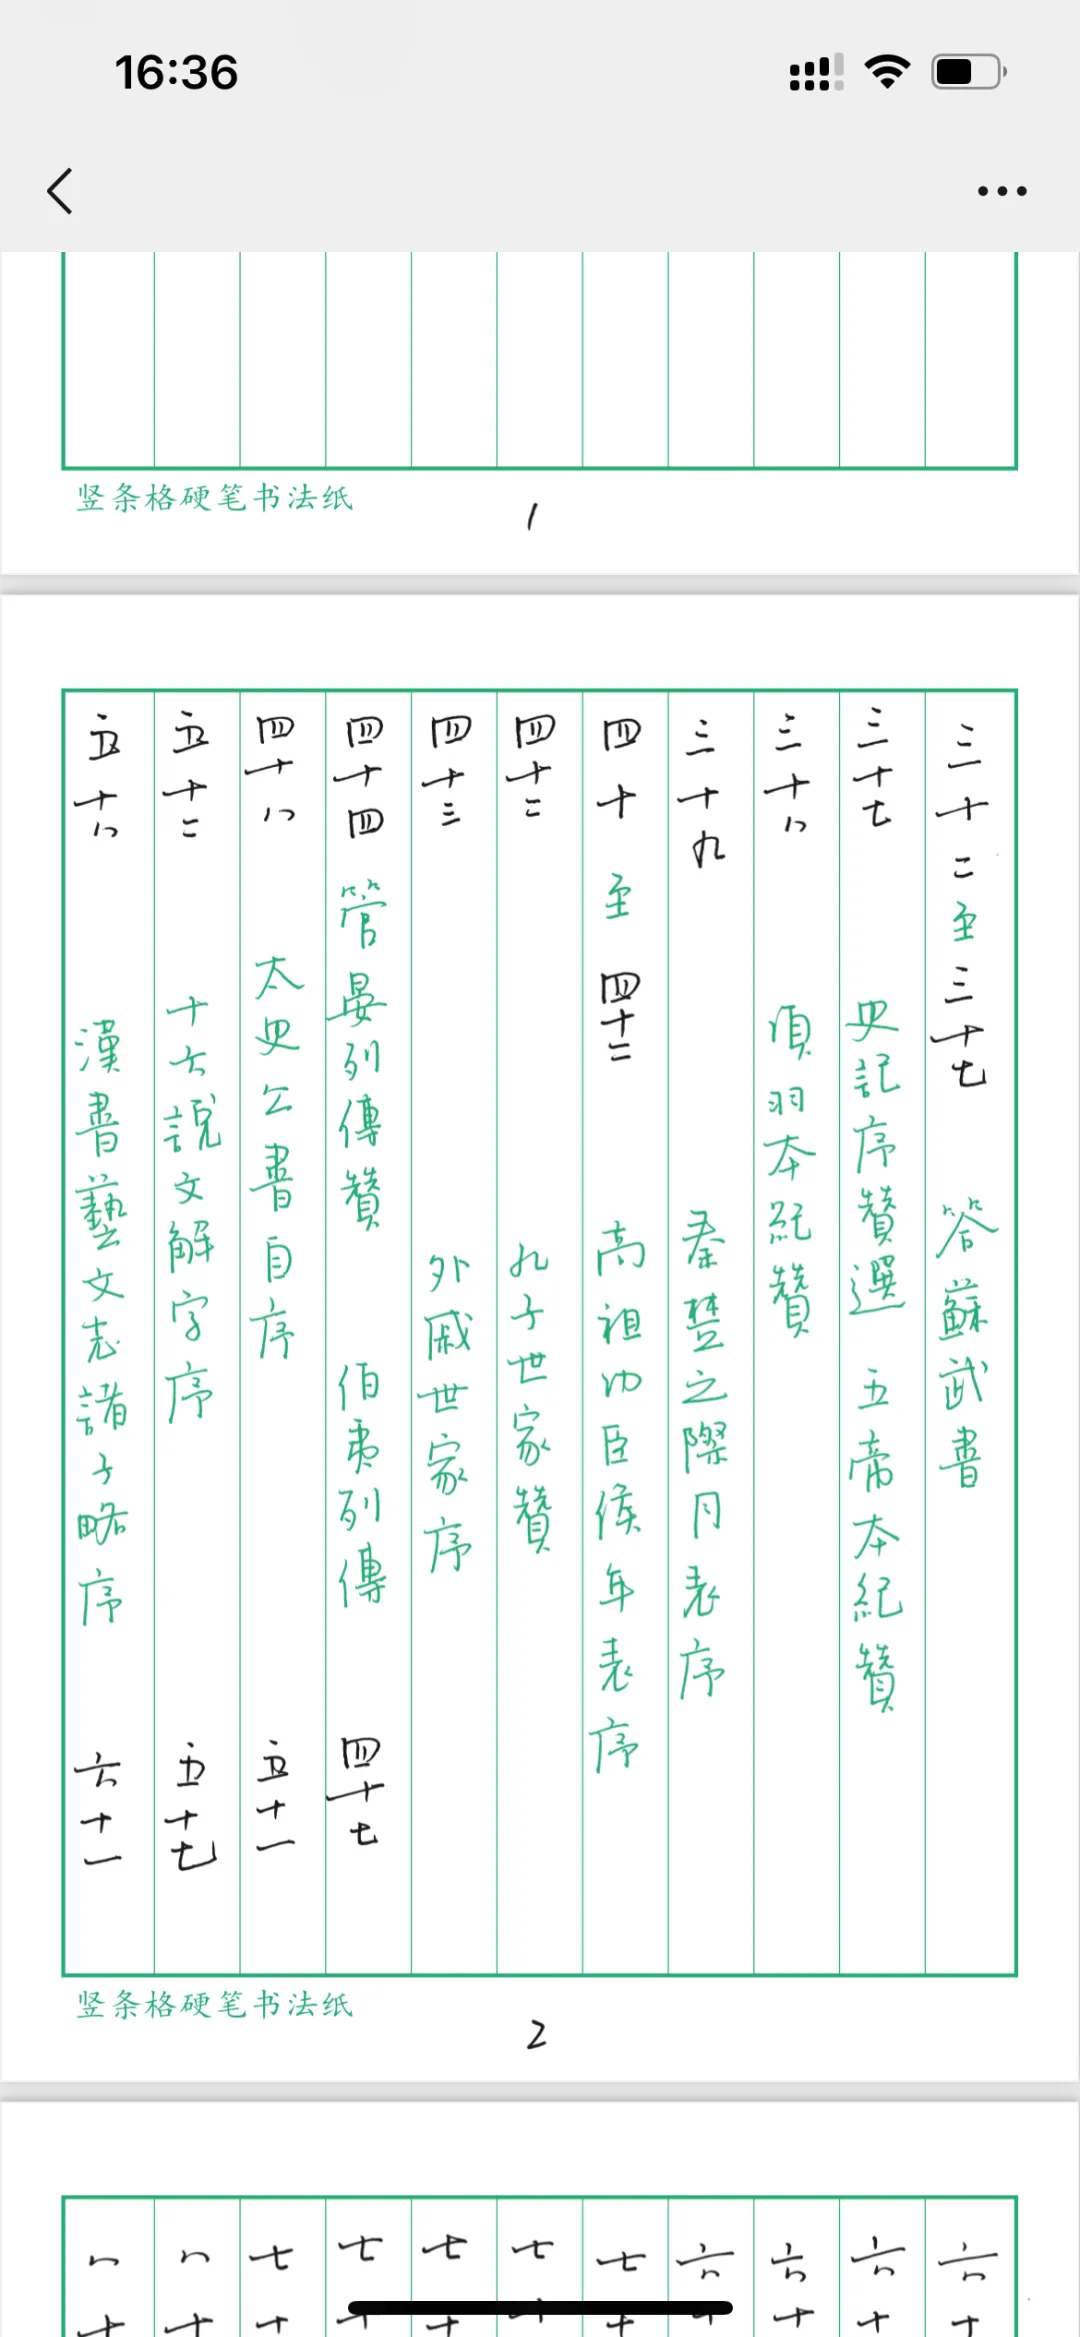 16:36
竖条格硬笔书法纸
1
三十二至三十七 答蘇武書
三十七 史記序贊選 五帝本紀贊
三十八 項羽本紀贊
三十九 秦楚之際月表序
四十至四十二 高祖功臣侯年表序
四十二 孔子世家贊
四十三 外戚世家序
四十四 管晏列傳贊 伯夷列傳 四十七
四十八 太史公書自序 五十一
五十二 十六說文解字序 五十七
五十八 漢書藝文志諸子略序 六十一
竖条格硬笔书法纸
2
六十
六十
六十
六十
七十
七十
七十
七十
七十
八十
八十